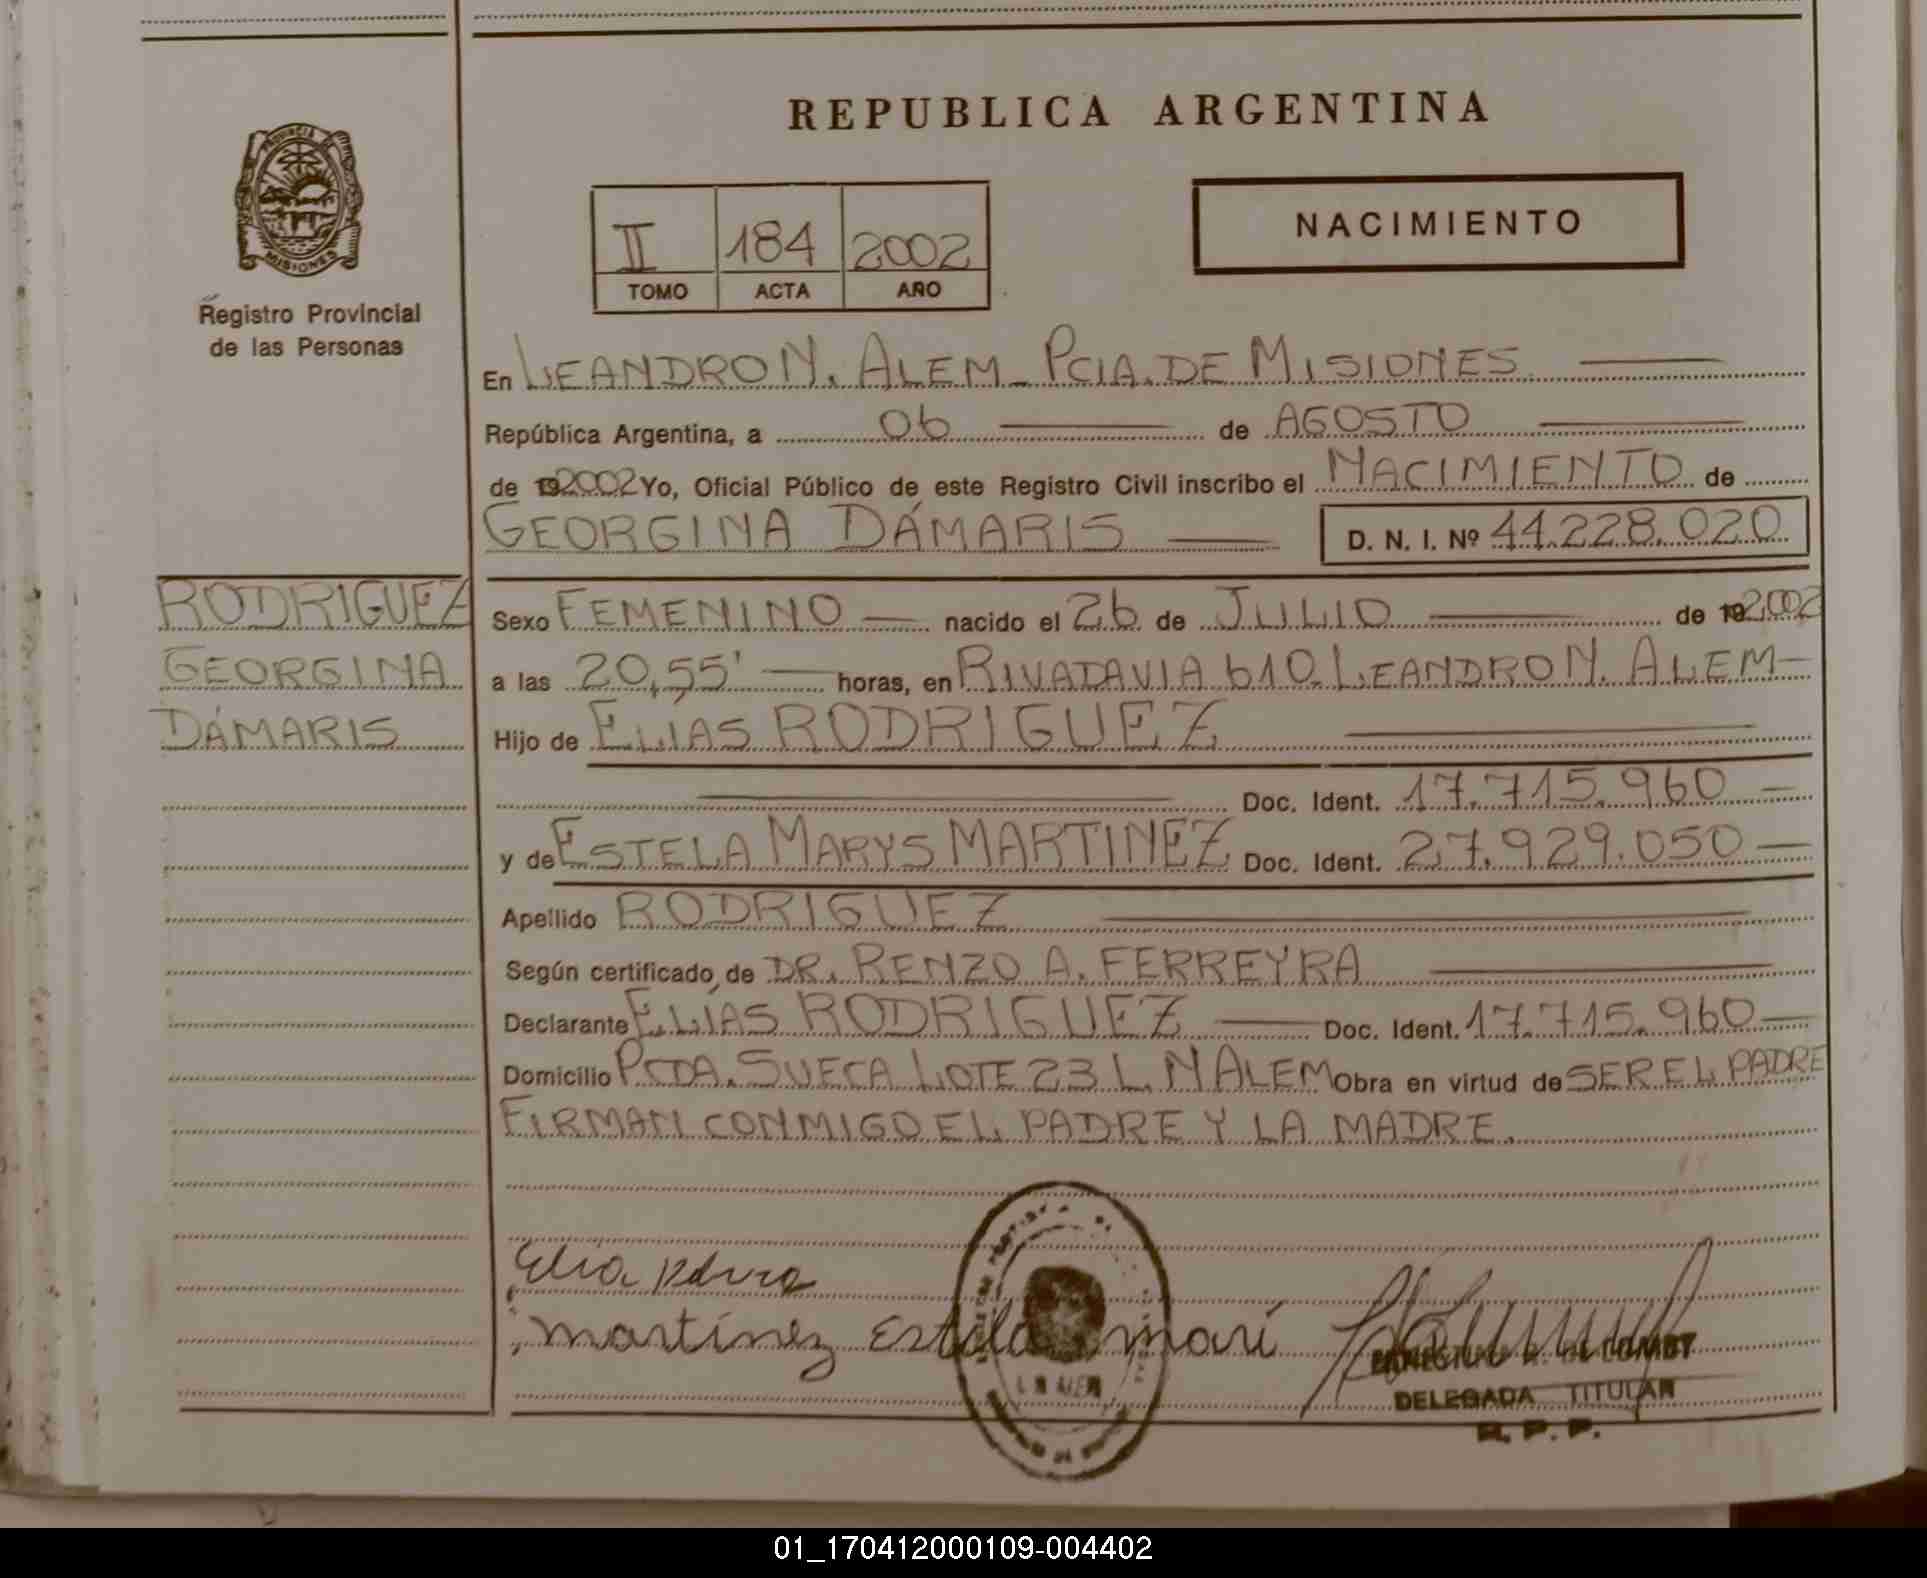 REPUBLICA ARGENTINA
PROVINCIA DE MISIONES
Registro Provincial
de las Personas
II 184 2002
TOMO ACTA AÑO
NACIMIENTO
En LEANDRO N. ALEM - PCIA. DE MISIONES
República Argentina, a 06 de AGOSTO
de 192002 Yo, Oficial Público de este Registro Civil inscribo el NACIMIENTO de
GEORGINA DÁMARIS D. N. I. Nº 44.228.020
RODRIGUEZ
GEORGINA
DÁMARIS
Sexo FEMENINO nacido el 26 de JULIO de 192002
a las 20,55' horas, en RIVADAVIA 610. LEANDRO N. ALEM
Hijo de ELIAS RODRIGUEZ
Doc. Ident. 17.715.960
y de ESTELA MARYS MARTINEZ Doc. Ident. 27.929.050
Apellido RODRIGUEZ
Según certificado de DR. RENZO A. FERREYRA
Declarante ELÍAS RODRIGUEZ Doc. Ident. 17.715.960
Domicilio PCDA. SUECA LOTE 23 L. N ALEM Obra en virtud de SER EL PADRE
FIRMAN CONMIGO EL PADRE Y LA MADRE.
martínez Estela mari
DELEGADA TITULAR
R. P. P.
01_170412000109-004402